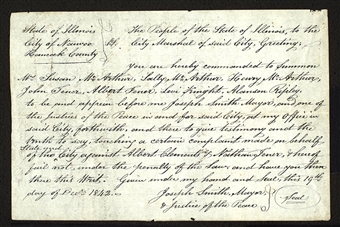 State of Illinois
City of Nauvoo
Hancock County
The People of the State of Illinois, to the
City Marshal of said City, Greeting.
You are hereby commanded to Summon
Mrs. Susan McArthur, Sally McArthur, Henry McArthur,
John Tener, Albert Tener, Levi Knight, Alanson Ripley,
to be and appear before me Joseph Smith Mayor, and one of
the Justices of the Peace in and for said City, at my Office in
said City, forthwith, and there to give testimony and the
truth to say, touching a certain complaint made on behalf
of the City against Albert Clement & Nathan Tener, & hereof
State and
fail not, under the penalty of the law: and have you then
there this Writ. Given under my hand and seal this 19th
day of Decr. 1842.
Joseph Smith, Mayor,
& Justice of the Peace
Seal